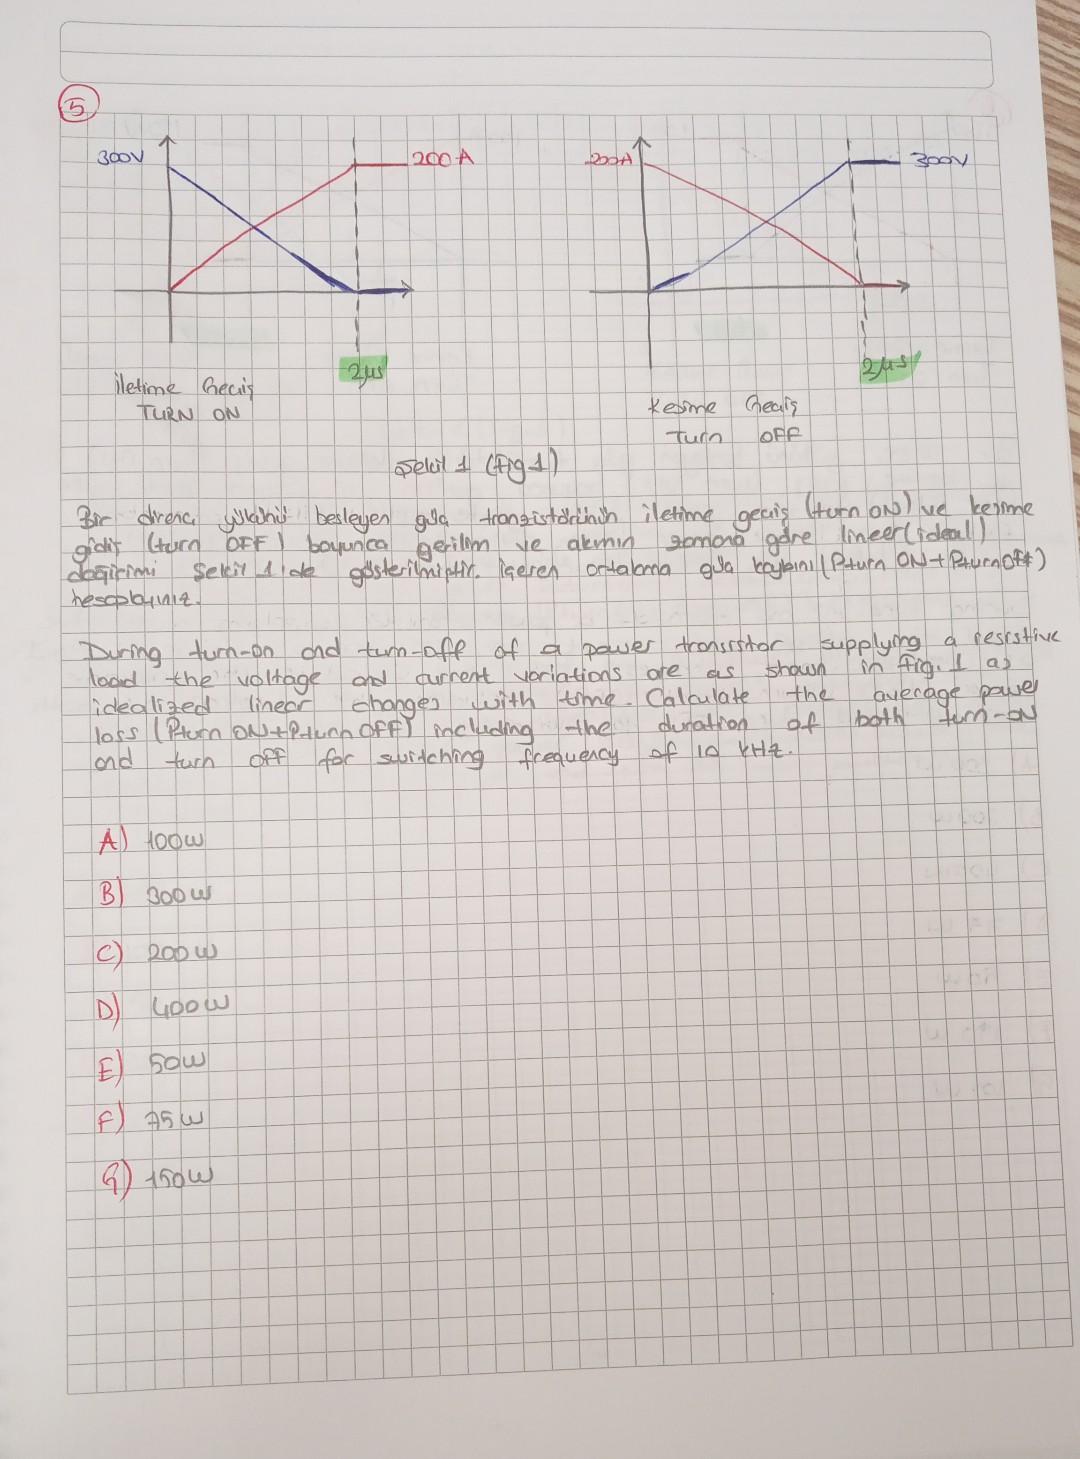 5
300V
200A
200A
300V
2μs
2μs
İletime Geçiş
TURN ON
Kesime Geçiş
Turn OFF
Şekil 1 (Fig 1)
Bir direnç yükünü besleyen güç tranzistörünün iletime geçiş (turn ON) ve kesime
gidiş (turn OFF) boyunca gerilim ve akımın zamana göre lineer (ideal)
değişimi Şekil 1'de gösterilmiştir. İçeren ortalama güç kaybını (Pturn ON + Pturn Off)
hesaplayınız.
During turn-on and turn-off of a power transistor supplying a resistive
load the voltage and current variations are as shown in fig. 1 as
idealized linear changes with time. Calculate the average power
loss (Pturn ON + Pturn OFF) including the duration of both turn-on
and turn off for switching frequency of 10 kHz.
A) 100W
B) 300W
C) 200W
D) 400W
E) 50W
F) 75W
G) 150W